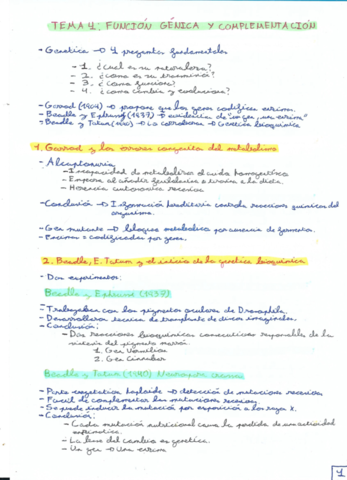 TEMA 4. FUNCIÓN GÉNICA Y COMPLEMENTACIÓN
- Genética → 4 preguntas fundamentales
- 1. ¿Cuál es su naturaleza?
- 2. ¿Cómo es su transmisión?
- 3. ¿Cómo funciona?
- 4. ¿Cómo cambia y evoluciona?
- Garrod (1909) → propone que los genes codifica enzimas.
- Beadle y Ephrussi (1937) → evidencia de "un gen, un enzima"
- Beadle y Tatum (1940) → Lo corroboran → Genética bioquímica
1. Garrod y los errores congénitos del metabolismo
- Alcaptonuria
- Incapacidad de metabolizar el ácido homogentísico
- Empeora al añadir fenilalanina o tirosina a la dieta.
- Herencia autosómica recesiva
- Conclusión → Información hereditaria controla reacciones químicas del
organismo.
- Gen mutante → bloqueo metabólico por ausencia de fermento.
- Enzimas = codificadas por genes.
2. Beadle, E. Tatum y el inicio de la genética bioquímica
- Dos experimentos:
Beadle y Ephrussi (1937)
- Trabajaban con los pigmentos oculares de Drosophila.
- Desarrollaron técnica de transplante de discos imaginales.
- Conclusión:
- Dos reacciones bioquímicas consecutivas responsables de la
síntesis del pigmento marrón
1. Gen Vermilion
2. Gen Cinnabar
Beadle y Tatum (1940) Neurospora crassa
- Parte vegetativa haploide → detección de mutaciones recesivas
- Fácil de complementar las mutaciones recesivas
- Se puede inducir la mutación por exposición a los rayos X.
- Conclusión:
- Cada mutación nutricional como la pérdida de una actividad
enzimática
- La base del cambio es genética.
- Un gen → Una enzima
1